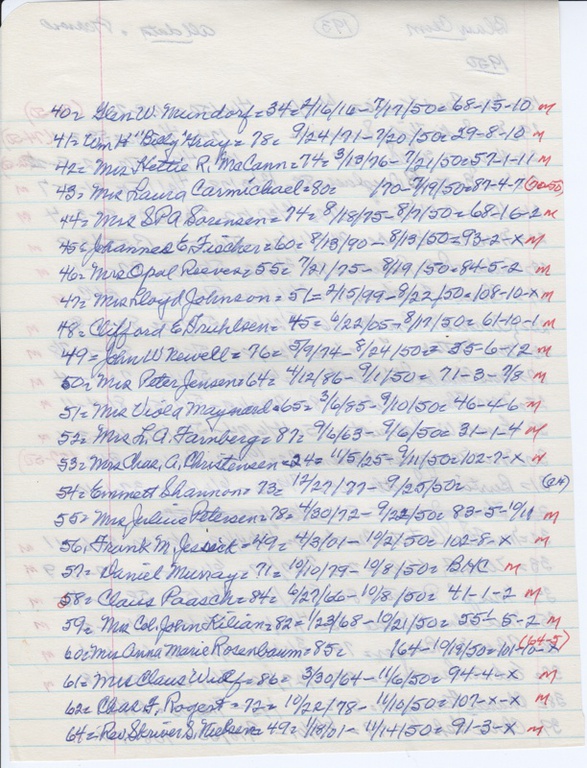 40= Glen W. Mundorf = 34= 2/16/16 - 7/17/50= 68-15-10 M
41= Wm H "Billy" Gray = 78= 9/24/71 - 7/20/50= 29-8-10 M
42= Mrs Hettie R. McCann = 74= 3/13/76 - 7/21/50= 57-1-11 M
43= Mrs Laura Carmichael = 80= /70 - 7/19/50= 87-4-7 (70-50)
44= Mrs S.P.A Sorensen = 74= 8/18/75 - 8/7/50= 68-16-2 M
45= Johannes E. Fischer = 60= 8/13/90 - 8/13/50= 93-2-X M
46= Mrs Opal Reeves = 55= 7/21/75 - 8/19/50= 84-5-2 M
47= Mrs Floyd Johnson = 51= 2/15/99 - 8/22/50= 108-10-X M
48= Clifford E. = 45= 6/22/05 - 8/17/50= 61-10-1 M
49= John W Newell = 76= 5/9/74 - 8/24/50= 55-6-12 M
50= Mrs Peter Jensen = 64= 4/12/86 - 9/1/50= 71-3-7/8 M
51= Mrs Viola Maynard = 65= 3/6/85 - 9/10/50= 46-4-6 M
52= Mrs L. A. Farnberg = 87= 9/6/63 - 9/6/50= 31-1-4 M
53= Mrs Chas. A. Christensen = 24= 11/5/25 - 9/11/50= 102-7-X M
54= Emmett Shannon = 73= 12/27/77 - 9/25/50=
55= Mrs Julius Petersen = 78= 4/30/72 - 9/22/50= 83-5-10/11 M
56, Frank M. = 49= 4/3/01 - 10/2/50= 102-8-X M
57= Daniel Murray = 71= 10/10/79 - 10/8/50= M
58= Claus Paasch = 84= 6/27/66 - 10/8/50= 41-1-2 M
59= Mrs Col. John Kilian = 82= 1/23/68 - 10/21/50= 55-5-2 M
60= Mrs Anna Marie Rosenbaum = 85= /64 - 10/19/50= (64-5)
61= Mrs Claus = 86= 3/30/64 - 11/6/50= 94-4-X M
62= Chas F. Rogert = 72= 10/22/78 - 11/10/50= 107-X-X M
64= Rev. Skriver S. Nielsen = 49= - 11/14/50= 91-3-X M